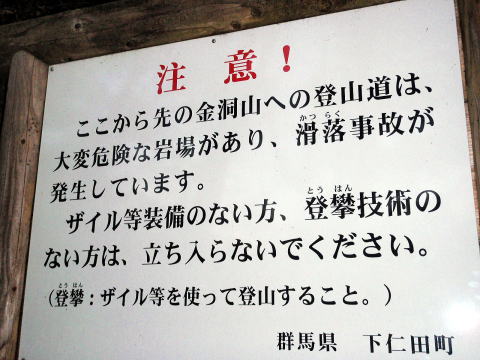 注意！
ここから先の金洞山への登山道は、
大変危険な岩場があり、滑落事故が
発生しています。
ザイル等装備のない方、登攀技術の
ない方は、立ち入らないでください。
（登攀：ザイル等を使って登山すること。）
群馬県 下仁田町